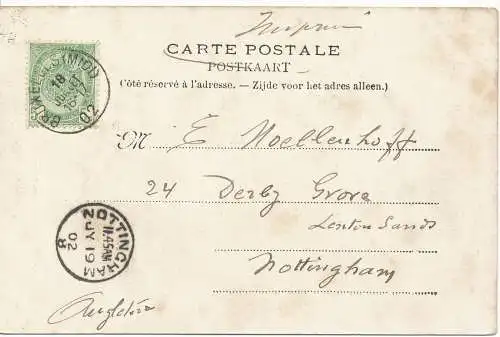 Imprimé
CARTE POSTALE
POSTKAART
(Côté réservé à l'adresse. — Zijde voor het adres alleen.)
BRUXELLES (MIDI)
18
02
M E Moellenhoff
24 Derby Grove
Lenton Sands
Nottingham
NOTTINGHAM
11.45AM
JY 19
02
Angleterre